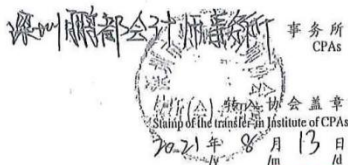 深圳鹏都会计师事务所 事务所
CPAs
协会盖章
Stamp of the transfer-in Institute of CPAs
2021年 8月 13日
/y /m /d